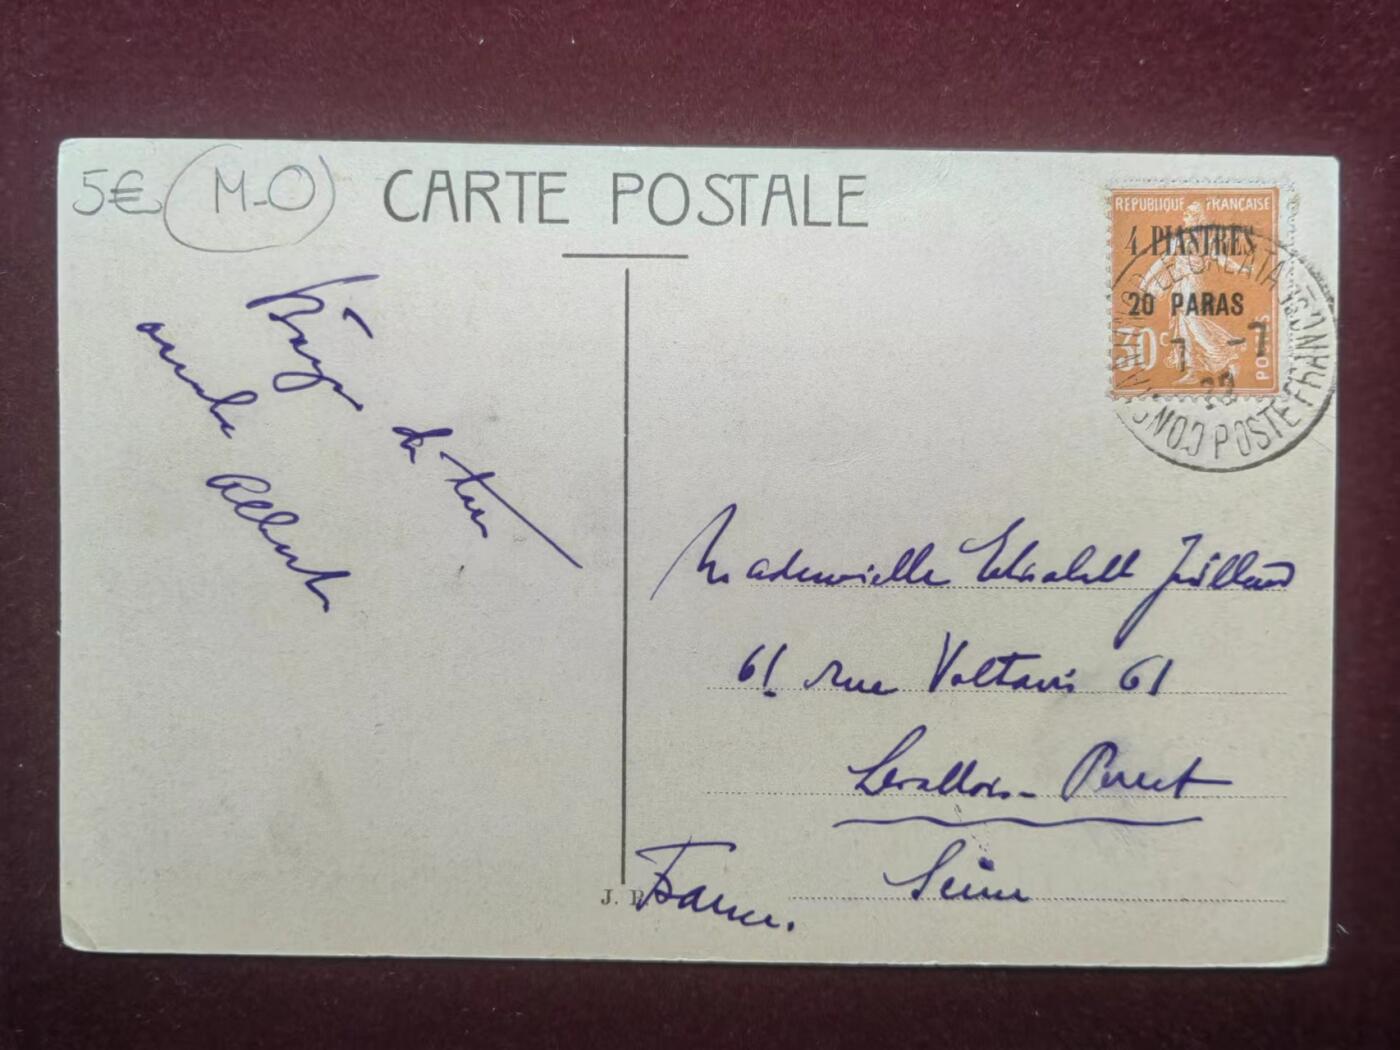 5€ M-O
CARTE POSTALE
REPUBLIQUE FRANÇAISE
4 PIASTRES
20 PARAS
30c
POSTES
CONSTANTINOPLE GALATA POSTE FRANÇSE
7 -7
de ton
oncle Albert
Mademoiselle Elisabeth
61 rue Voltaire 61
Levallois-Perret
Seine
France.
J.